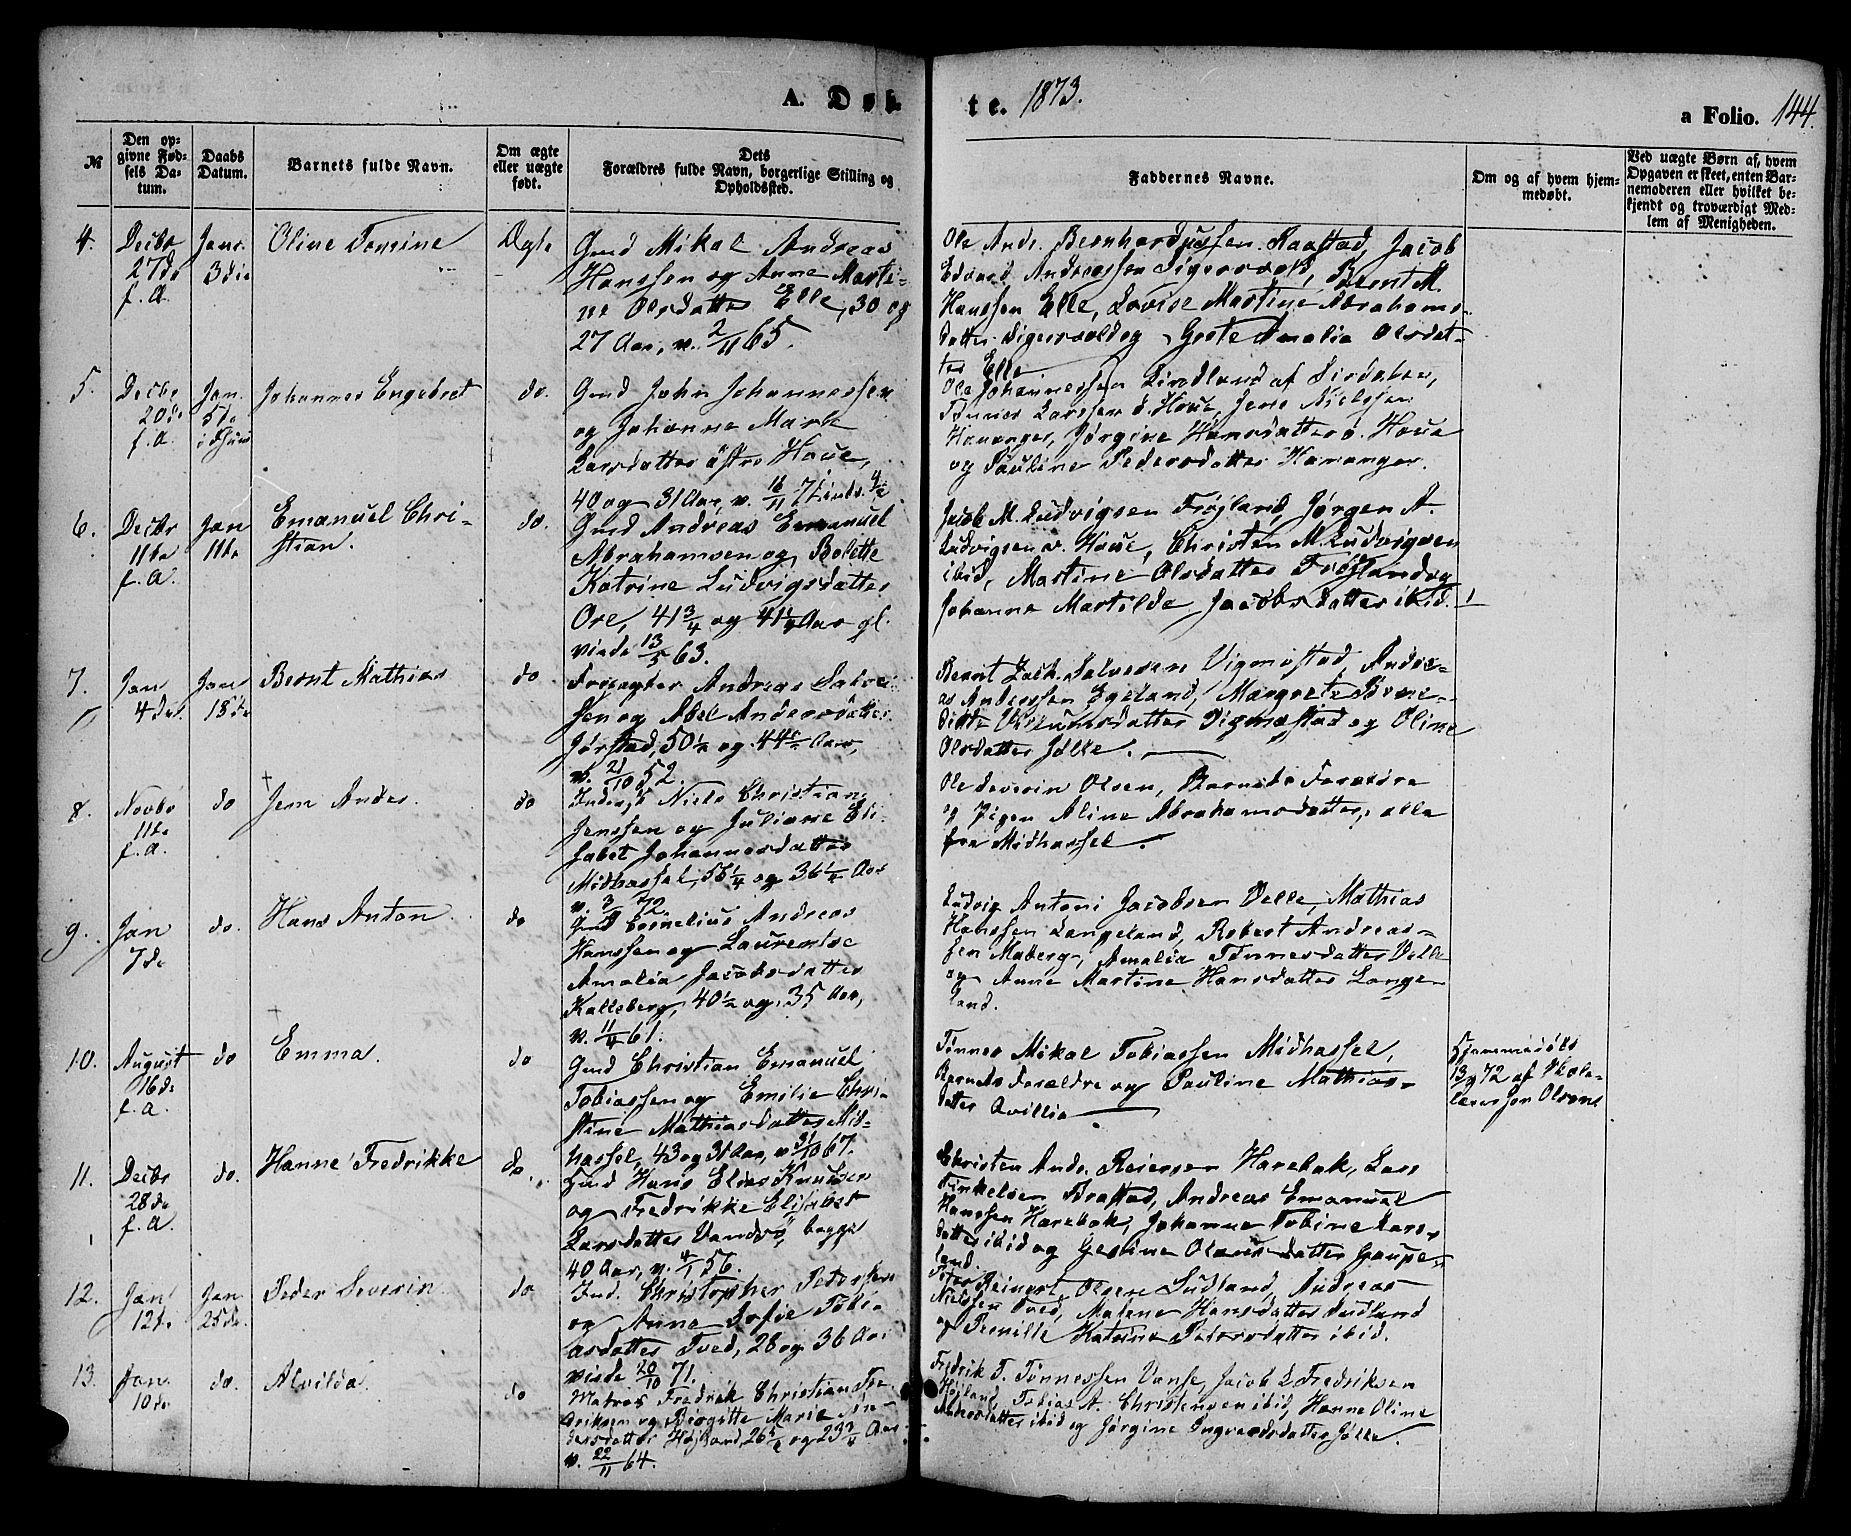 A. Døb-
te. 1873.
a Folio. 144.
№
Den op-
givne Fød-
sels Da-
tum.
Daabs
Datum.
Barnets fulde Navn.
Om ægte
eller uægte
født.
Dets
Forældres fulde Navn, borgerlige Stilling og
Opholdssted.
Faddernes Navne.
Om og af hvem hjem-
medøbt.
Ved uægte Børn af, hvem
Opgaven er skeet, enten Bar-
nemoderen eller hvilket be-
kjendt og troværdigt Med-
lem af Menigheden.
4.
Decbr
27de
f. A.
Janr.
3die
Oline Tomine
Ægte
Gmd Mikal Andreas
Hanssen og Anne Marti-
ne Olsdatter Elle, 30 og
27 Aar, v. 2/11 65.
Ole Andr. Bernhardussen Raastad, Jacob
Edvard Andreassen Sigersvold, Bernt M.
Hanssen Elle, Lovise Martine Abrahams-
datter Sigersvold og Geste Amalia Olsdat-
ter Elle
5.
Decbr
20de
f. A.
Jan.
5te
Johannes Engebret
do.
Gmd John Johannessen
og Johanne Marte
Larsdatter østre Houe,
40 og 31 Aar, v. 16/11 71
Ole Johannessen Lindland af Sirdalen,
Tønnes Larssen ø. Houe, Jens Nielssen
Hananger, Jørgine Hansdatter ø. Houe
og Pauline Pedersdatter Hananger.
6.
Decbr
11te
f. A.
Jan
11te
Emanuel Chri-
stian.
do.
Gmd Andreas Emanuel
Abrahamsen og Bolette
Katrine Ludvigsdatter
Ore, 41 3/4 og 41 1/4 Aar gl.
viede 13/5 63.
Jacob M. Ludvigsen Frøjland, Jørgen A.
Ludvigsen v. Houe, Christen M. Ludvigsen
ibid, Martine Olsdatter Frøjland og
Johanne Martilde Jacobsdatter ibid.
7.
Jan
4de
Jan
18de
Bernt Mathias
do
Forpagter Andreas Salve-
sen og Abel Andersdatter
Jørstad, 50 1/2 og 44 Aar,
v. 21/10 52.
Bernt Zach. Salvesen Vigmostad, Andre-
as Anderssen Egeland, Margrete Børne-
Villumsdatter Vigmostad og Oline
Olsdatter Jølle.
8.
Novbr
11te
f. A.
do
Jens Andr.
do
Inders. Niels Christian
Jenssen og Juliane Eli-
sabet Johannesdatter
Midhassel, 56 1/4 og 36 1/4 Aar
v. 3/ 72.
Ole Severin Olsen, Barnets Forældre
og Pigen Aline Abrahamsdatter, alle
fra Midhassel.
9.
Jan
7de
do.
Hans Anton
do
Gmd Cornelius Andreas
Hanssen og Laurentse
Amalia Jacobsdatter
Kalleberg, 40 1/2 og 35 Aar,
v. 11/4 61.
Ludvig Antoni Jacobsen Velle, Mathias
Hanssen Langeland, Robert Andreas-
sen Maberg, Amalia Tønnesdatter Velle
og Anne Martine Hansdatter Lange-
land.
10.
August
16de
f. A.
do
Emma.
do
Gmd Christian Emanuel
Tobiassen og Emilie Chri-
stine Mathiasdatter Mid-
hassel, 43 og 31 Aar, v 31/10 67.
Tønnes Mikal Tobiassen Midhassel,
Barnets Forældre og Pauline Mathias-
datter Qvillia
Hjemmedøbt
13/9 72 af Skole-
læreren Olsen
11.
Decbr
28de
f. A.
do.
Hanne Fredrikke
do.
Gmd Hans Elias Knudsen
og Fredrikke Elisabet
Larsdatter Vandsø, begge
40 Aar, v. 4/1 56.
Christen Andr. Reiersen Harebak, Lars
Tinkelsen Brastad, Andreas Emanuel
Hanssen Harebak, Johanne Tobine Lars-
datter ibid og Gesine Olaus datter Gaupe-
land.
12.
Jan
12te
Jan
25de.
Peder Severin
do
Ind. Christopher Peterssen
og Anna Sofie Tobi-
asdatter Tved, 28 og 36 Aar
viede 20/10 71.
Peter Reinert Olsen Sudland, Andreas
Nielssen Tved, Malene Hansdatter Sudland
og Pernille Katrine Petersdatter ibid.
13.
Jan.
10de
do.
Alvilda.
do
Matros Fredrik Christian Fre-
driksen og Birgitte Marie An-
dersdatter Højland, 26 og 23 Aar
v. 22/11 64.
Fredrik T. Tønnessen Vanse, Jacob L Fredriksen
Højland, Tobias A. Christensen ibid, Hanne Oline
Andersdatter ibid og Jørgine Ingvardsdatter Jølle.